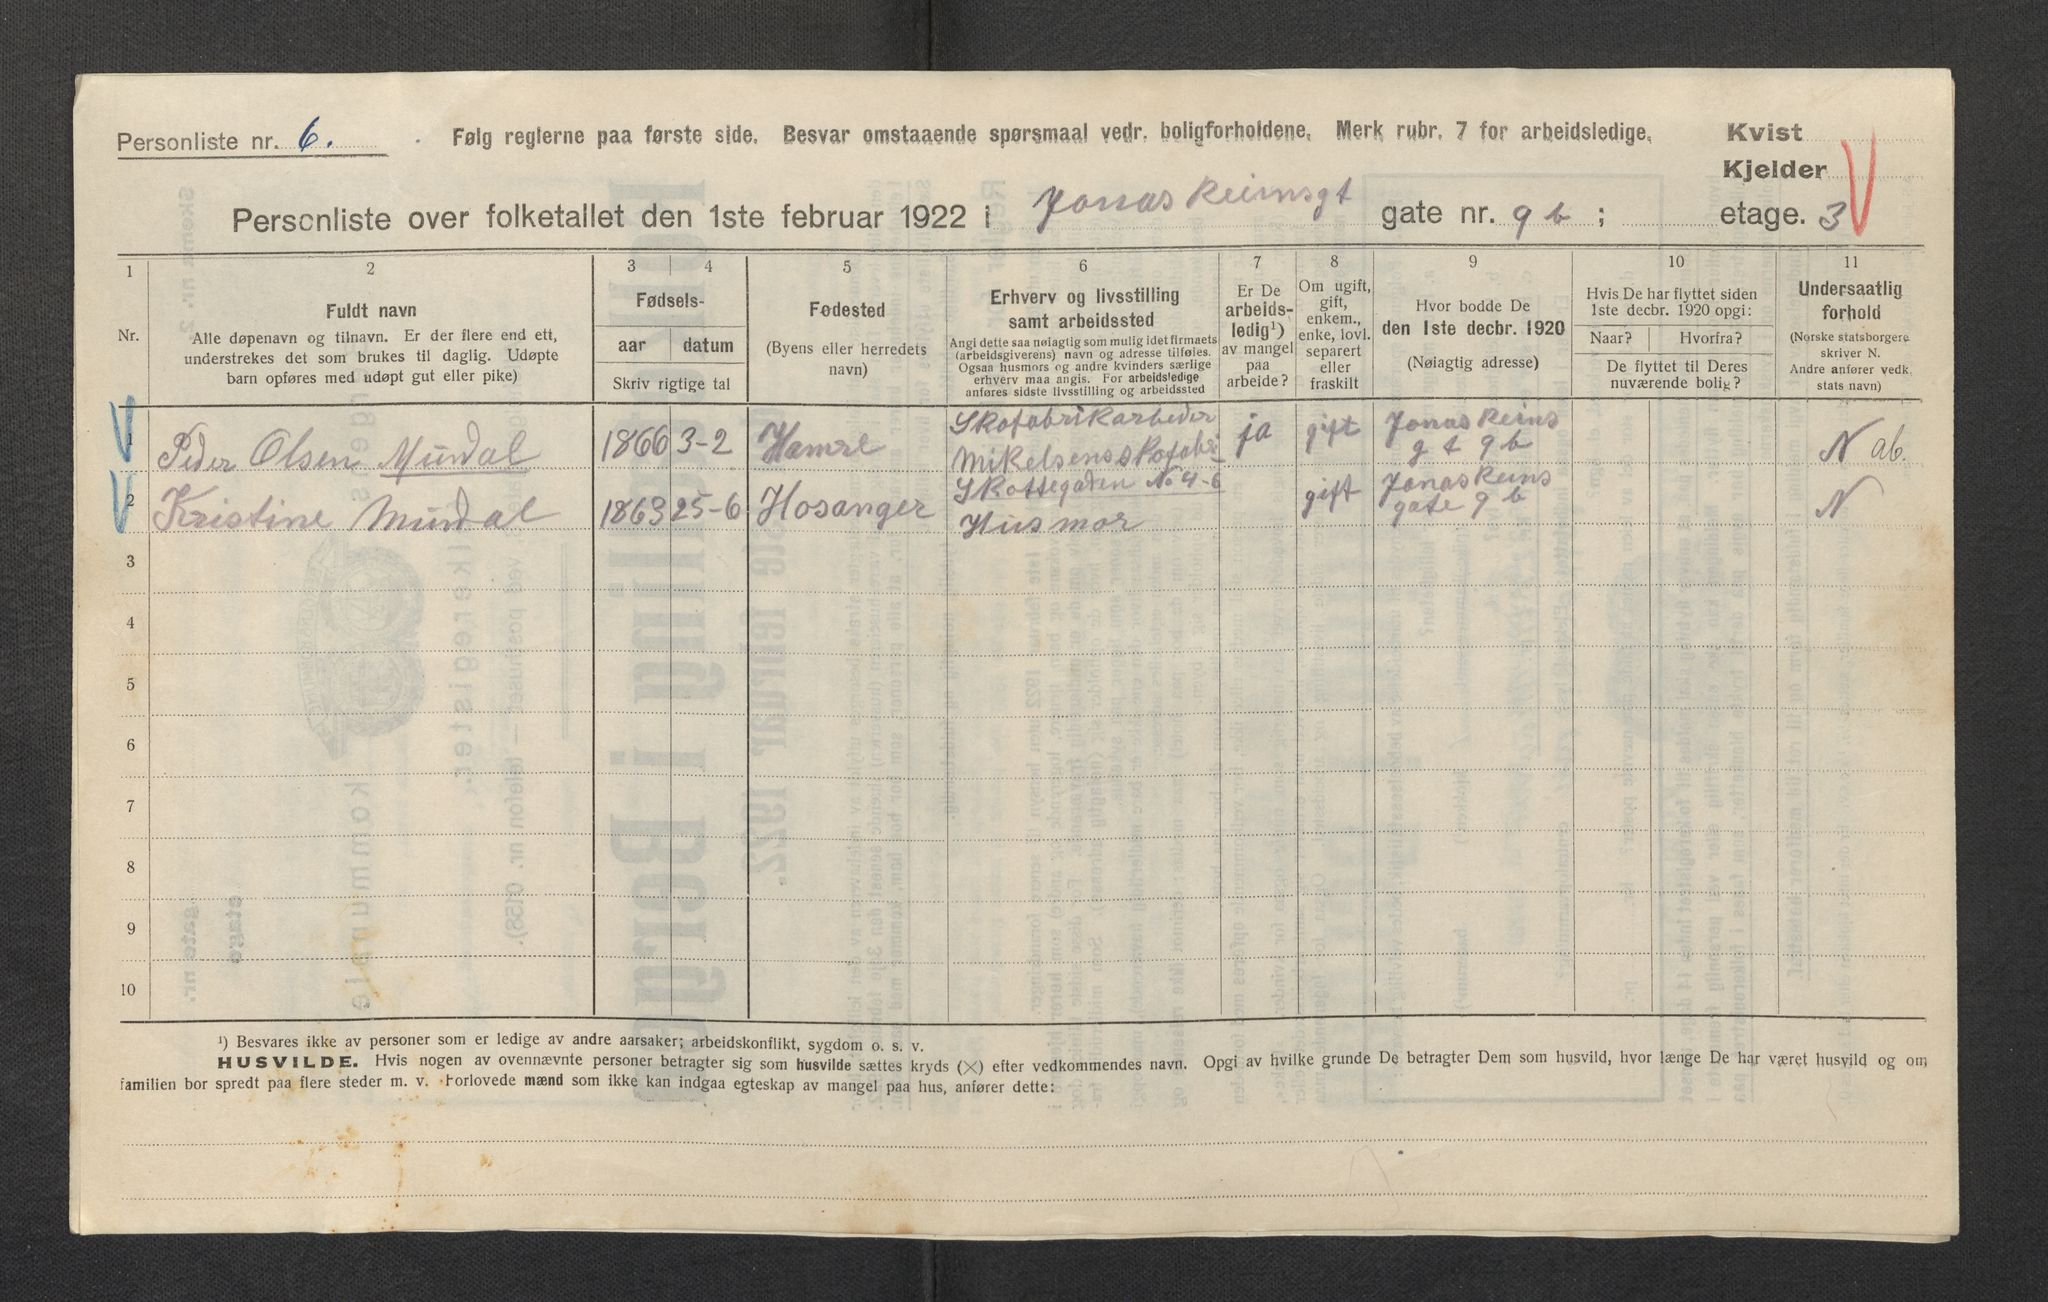 Personliste nr. 6.
Følg reglerne paa første side. Besvar omstaaende spørsmaal vedr. boligforholdene. Merk rubr. 7 for arbeidsledige.
Kvist
Kjelder
Personliste over folketallet den 1ste februar 1922 i Jonas Reinsgt gate nr. 9 b ; etage. 3
1 2 3 4 5 6 7 8 9 10 11
Nr.
Fuldt navn
Alle døpenavn og tilnavn. Er der flere end ett,
understrekes det som brukes til daglig. Udøpte
barn opføres med udøpt gut eller pike)
Fødsels-
aar datum
Skriv rigtige tal
Fødested
(Byens eller herredets
navn)
Erhverv og livsstilling
samt arbeidssted
Angi dette saa nøiagtig som mulig idet firmaets
(arbeidsgiverens) navn og adresse tilføies.
Ogsaa husmors og andre kvinders særlige
erhverv maa angis. For arbeidsledige
anføres sidste livsstilling og arbeidssted
Er De
arbeids-
ledig¹)
av mangel
paa
arbeide?
Om ugift,
gift,
enkem.,
enke, lovl.
separert
eller
fraskilt
Hvor bodde De
den 1ste decbr. 1920
(Nøiagtig adresse)
Hvis De har flyttet siden
1ste decbr. 1920 opgi:
Naar? Hvorfra?
De flyttet til Deres
nuværende bolig?
Undersaatlig
forhold
(Norske statsborgere
skriver N.
Andre anfører vedk.
stats navn)
1 Peder Olsen Mundal 1866 3-2 Hamre
Skofabrikarbeder
Mikelsens skofabr
Skottegaden No 4-6
ja gift
Jonas Reins
gt 9 b
N ab.
2 Kristine Mundal 1863 25-6 Hosanger
Husmor
gift
Jonas Reins
gate 9 b
N
3
4
5
6
7
8
9
10
¹) Besvares ikke av personer som er ledige av andre aarsaker; arbeidskonflikt, sygdom o. s. v.
HUSVILDE. Hvis nogen av ovennævnte personer betragter sig som husvilde sættes kryds (×) efter vedkommendes navn. Opgi av hvilke grunde De betragter Dem som husvild, hvor længe De har været husvild og om
familien bor spredt paa flere steder m. v. Forlovede mænd som ikke kan indgaa egteskap av mangel paa hus, anfører dette: